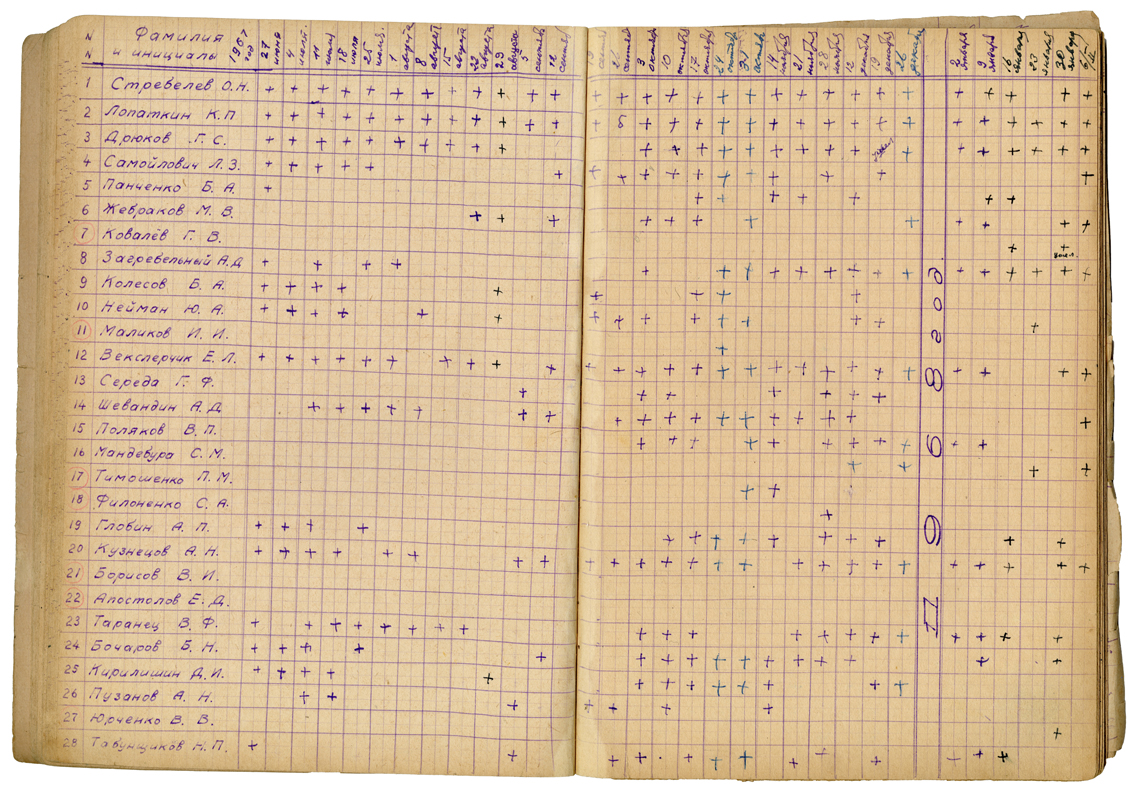 N N Фамилия и инициалы 1967 год 27 июня 4 июля 11 июля 18 июля 25 июля 1 августа 8 август 15 августа 22 августа 29 августа 5 сентяб 12 сентяб 26 сентяб 3 октября 10 октября 17 октября 24 октябр 31 октяб 14 ноября 21 ноября 28 ноября 12 декабря 19 декабря 26 декабря 2 января 9 января 16 января 23 января 30 января
1 Стревелев О.Н.
2 Лопаткин К.П
3 Дрюков Г.С.
4 Самойлович Л.З.
5 Панченко Б.А.
6 Жевраков М.В.
7 Ковалёв Г.В.
8 Загребельный А.Д
9 Колесов Б.А.
10 Нейман Ю.А.
11 Маликов И.И.
12 Векслерчик Е.Л.
13 Середа Г.Ф.
14 Шевандин А.Д.
15 Поляков В.П.
16 Мандебура С.М.
17 Тимошенко Л.М.
18 Филоненко С.А.
19 Глобин А.П.
20 Кузнецов А.Н.
21 Борисов В.И.
22 Апостолов Е.Д.
23 Таранец В.Ф.
24 Бочаров Б.Н.
25 Кирилишин Д.И.
26 Пузанов А.Н.
27 Юрченко В.В.
28 Табунщиков Н.П.
1968 год